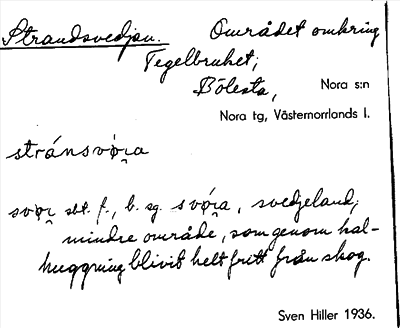 Strandsvedjan. Området omkring
Tegelbruket;
Bölesta, Nora s:n
Nora tg, Västernorrlands l.
stránsvø̀ra
svør sbt. f., b. sg. svø̀ra, svedjeland;
mindre område, som genom kal-
huggning blivit helt fritt från skog.
Sven Hiller 1936.